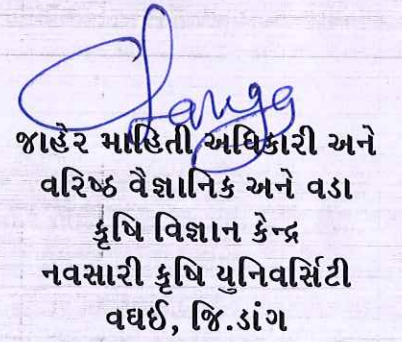 જાહેર માહિતી અધિકારી અને
વરિષ્ઠ વૈજ્ઞાનિક અને વડા
કૃષિ વિજ્ઞાન કેન્દ્ર
નવસારી કૃષિ યુનિવર્સિટી
વઘઈ, જિ.ડાંગ